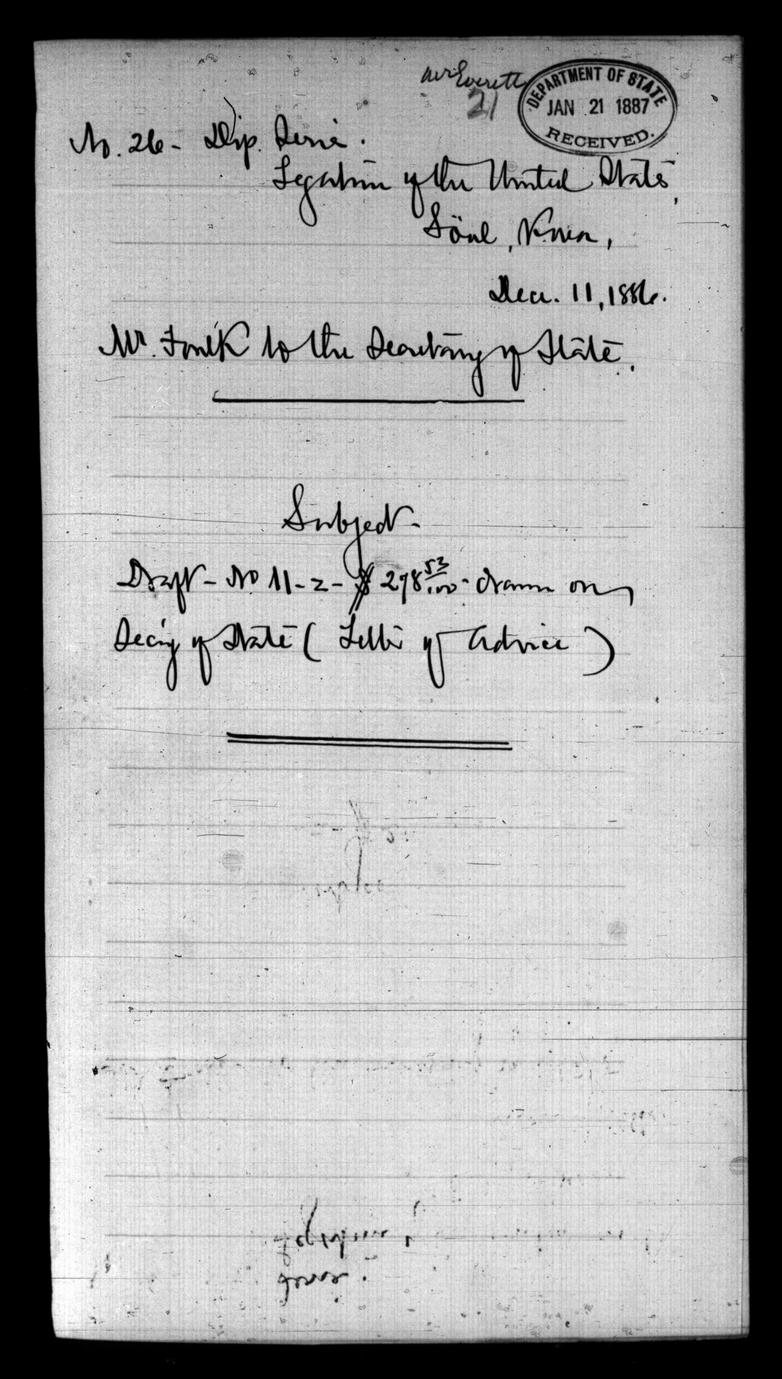 Mr Everett
21
DEPARTMENT OF STATE
JAN 21 1887
RECEIVED.
No. 26 - Dip. Serie.
Legation of the United States,
Söul, Korea,
Dec. 11, 1886.
Mr. Foulk to the Secretary of State.
Subject -
Draft - No 11-2- $ 278 53/100 - drawn on
Sec'y of State ( Letter of Advice )